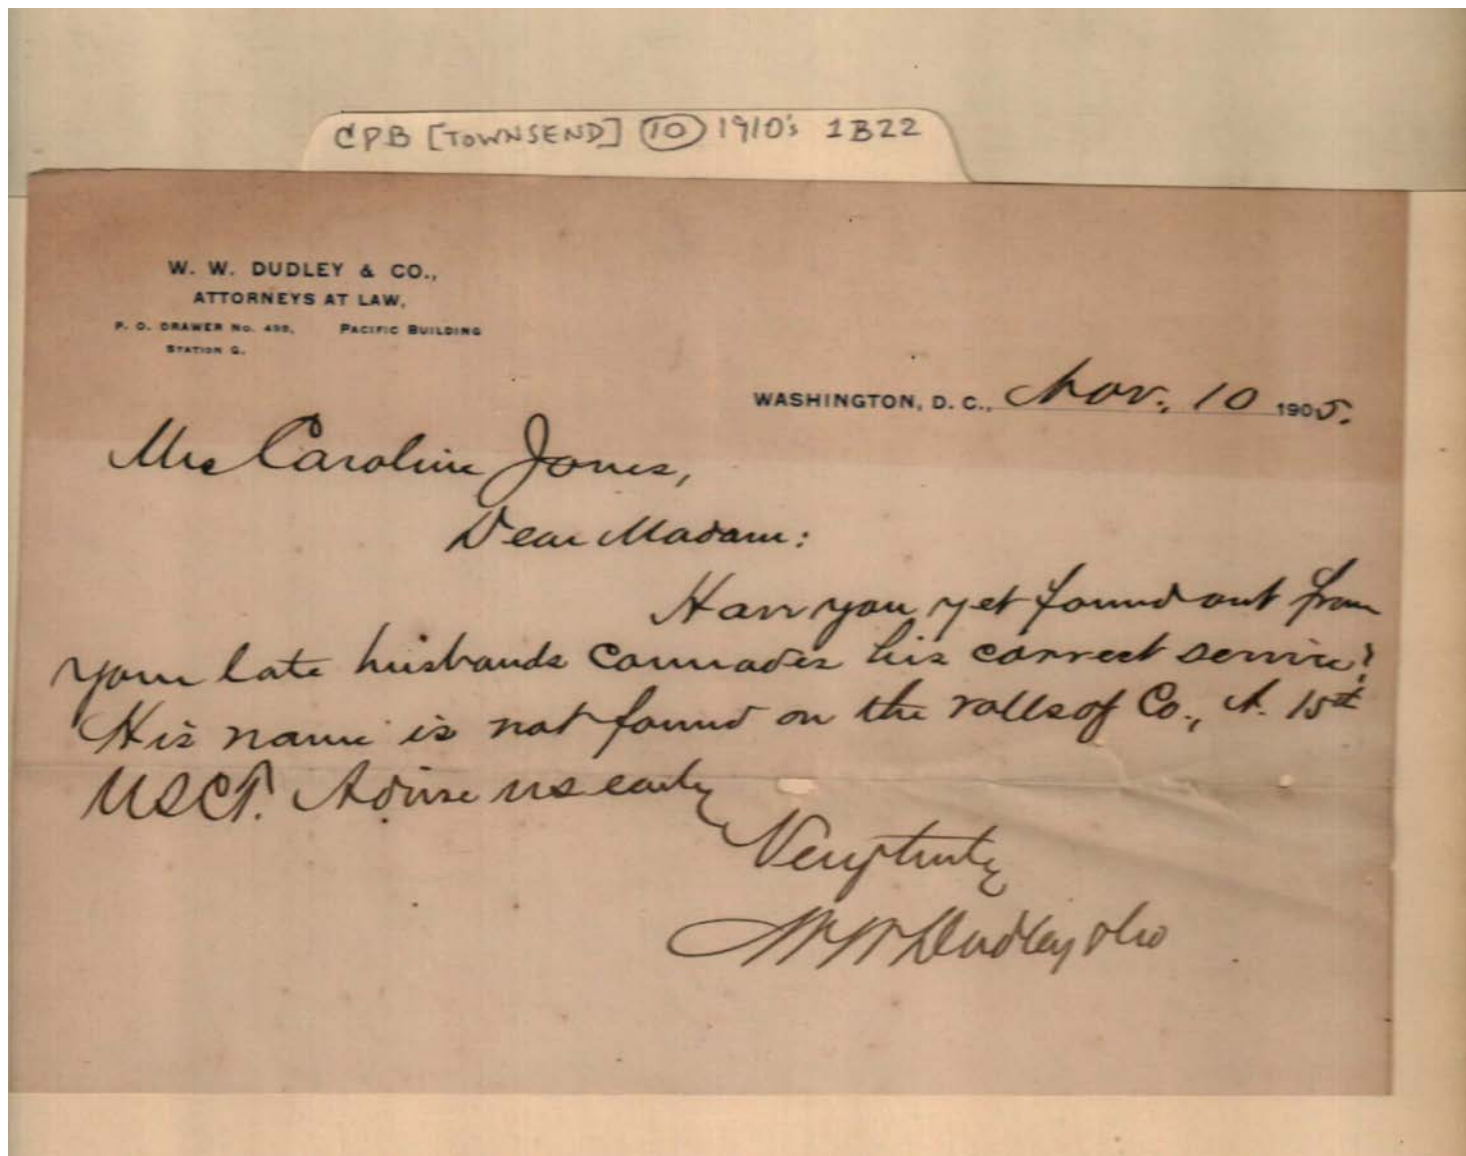 CPB [TOWNSEND] 10 1910's 1B22
W. W. DUDLEY & CO.,
ATTORNEYS AT LAW,
P. O. DRAWER No. PACIFIC BUILDING
STATION G.
WASHINGTON, D. C., Nov. 10 1905.
Mrs Caroline Jones,
Dear Madam:
Have you yet found out from
your late husbands comrades his correct service?
His name is not found on the rolls of Co., A. 15th
USCT. Advise us early
Very truly
W W Dudley & Co